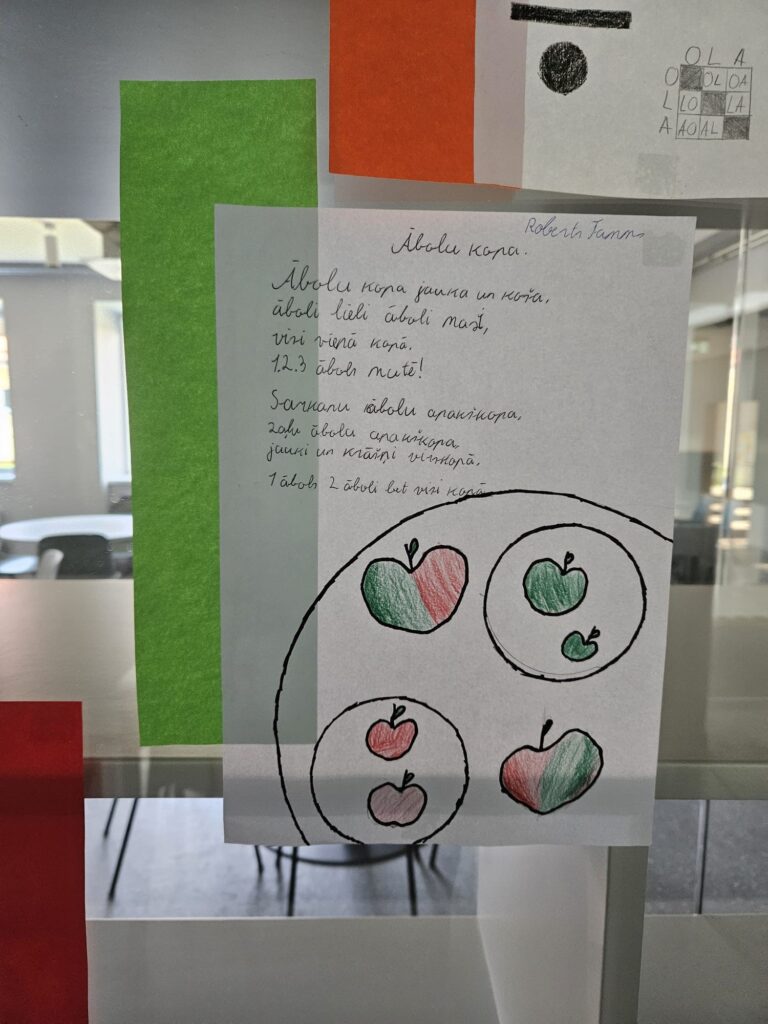 O L A
O OL OA
L LO LA
A AO AL
Roberts Tamms
Ābolu kopa.
Ābolu kopa jauka un koša,
āboli lieli āboli mazi,
visi vienā kopā.
1.2.3 ābols mutē!
Sarkanu ābolu apakškopa,
zaļu ābolu apakškopa,
jauki un krāšņi virskopā.
1 ābols 2 āboli bet visi kopā